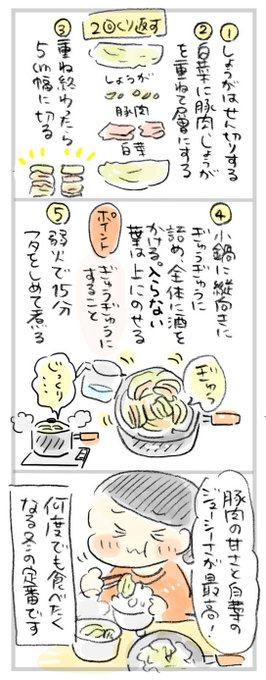 ①しょうがはせん切りする
②白菜に豚肉、しょうが
を重ねて層にする
2回くり返す
しょうが
豚肉
白菜
③重ね終わったら
5cm幅に切る
④小鍋に縦向きに
ぎゅうぎゅうに
詰め、全体に酒を
かける。入らない
葉は上にのせる
ポイント
ぎゅうぎゅうに
すること
⑤弱火で15分
フタをしめて煮る
ぎゅっ
じっくり…
豚肉の甘さと白菜の
ジューシーさが最高!
何度でも食べたく
なる冬の定番です